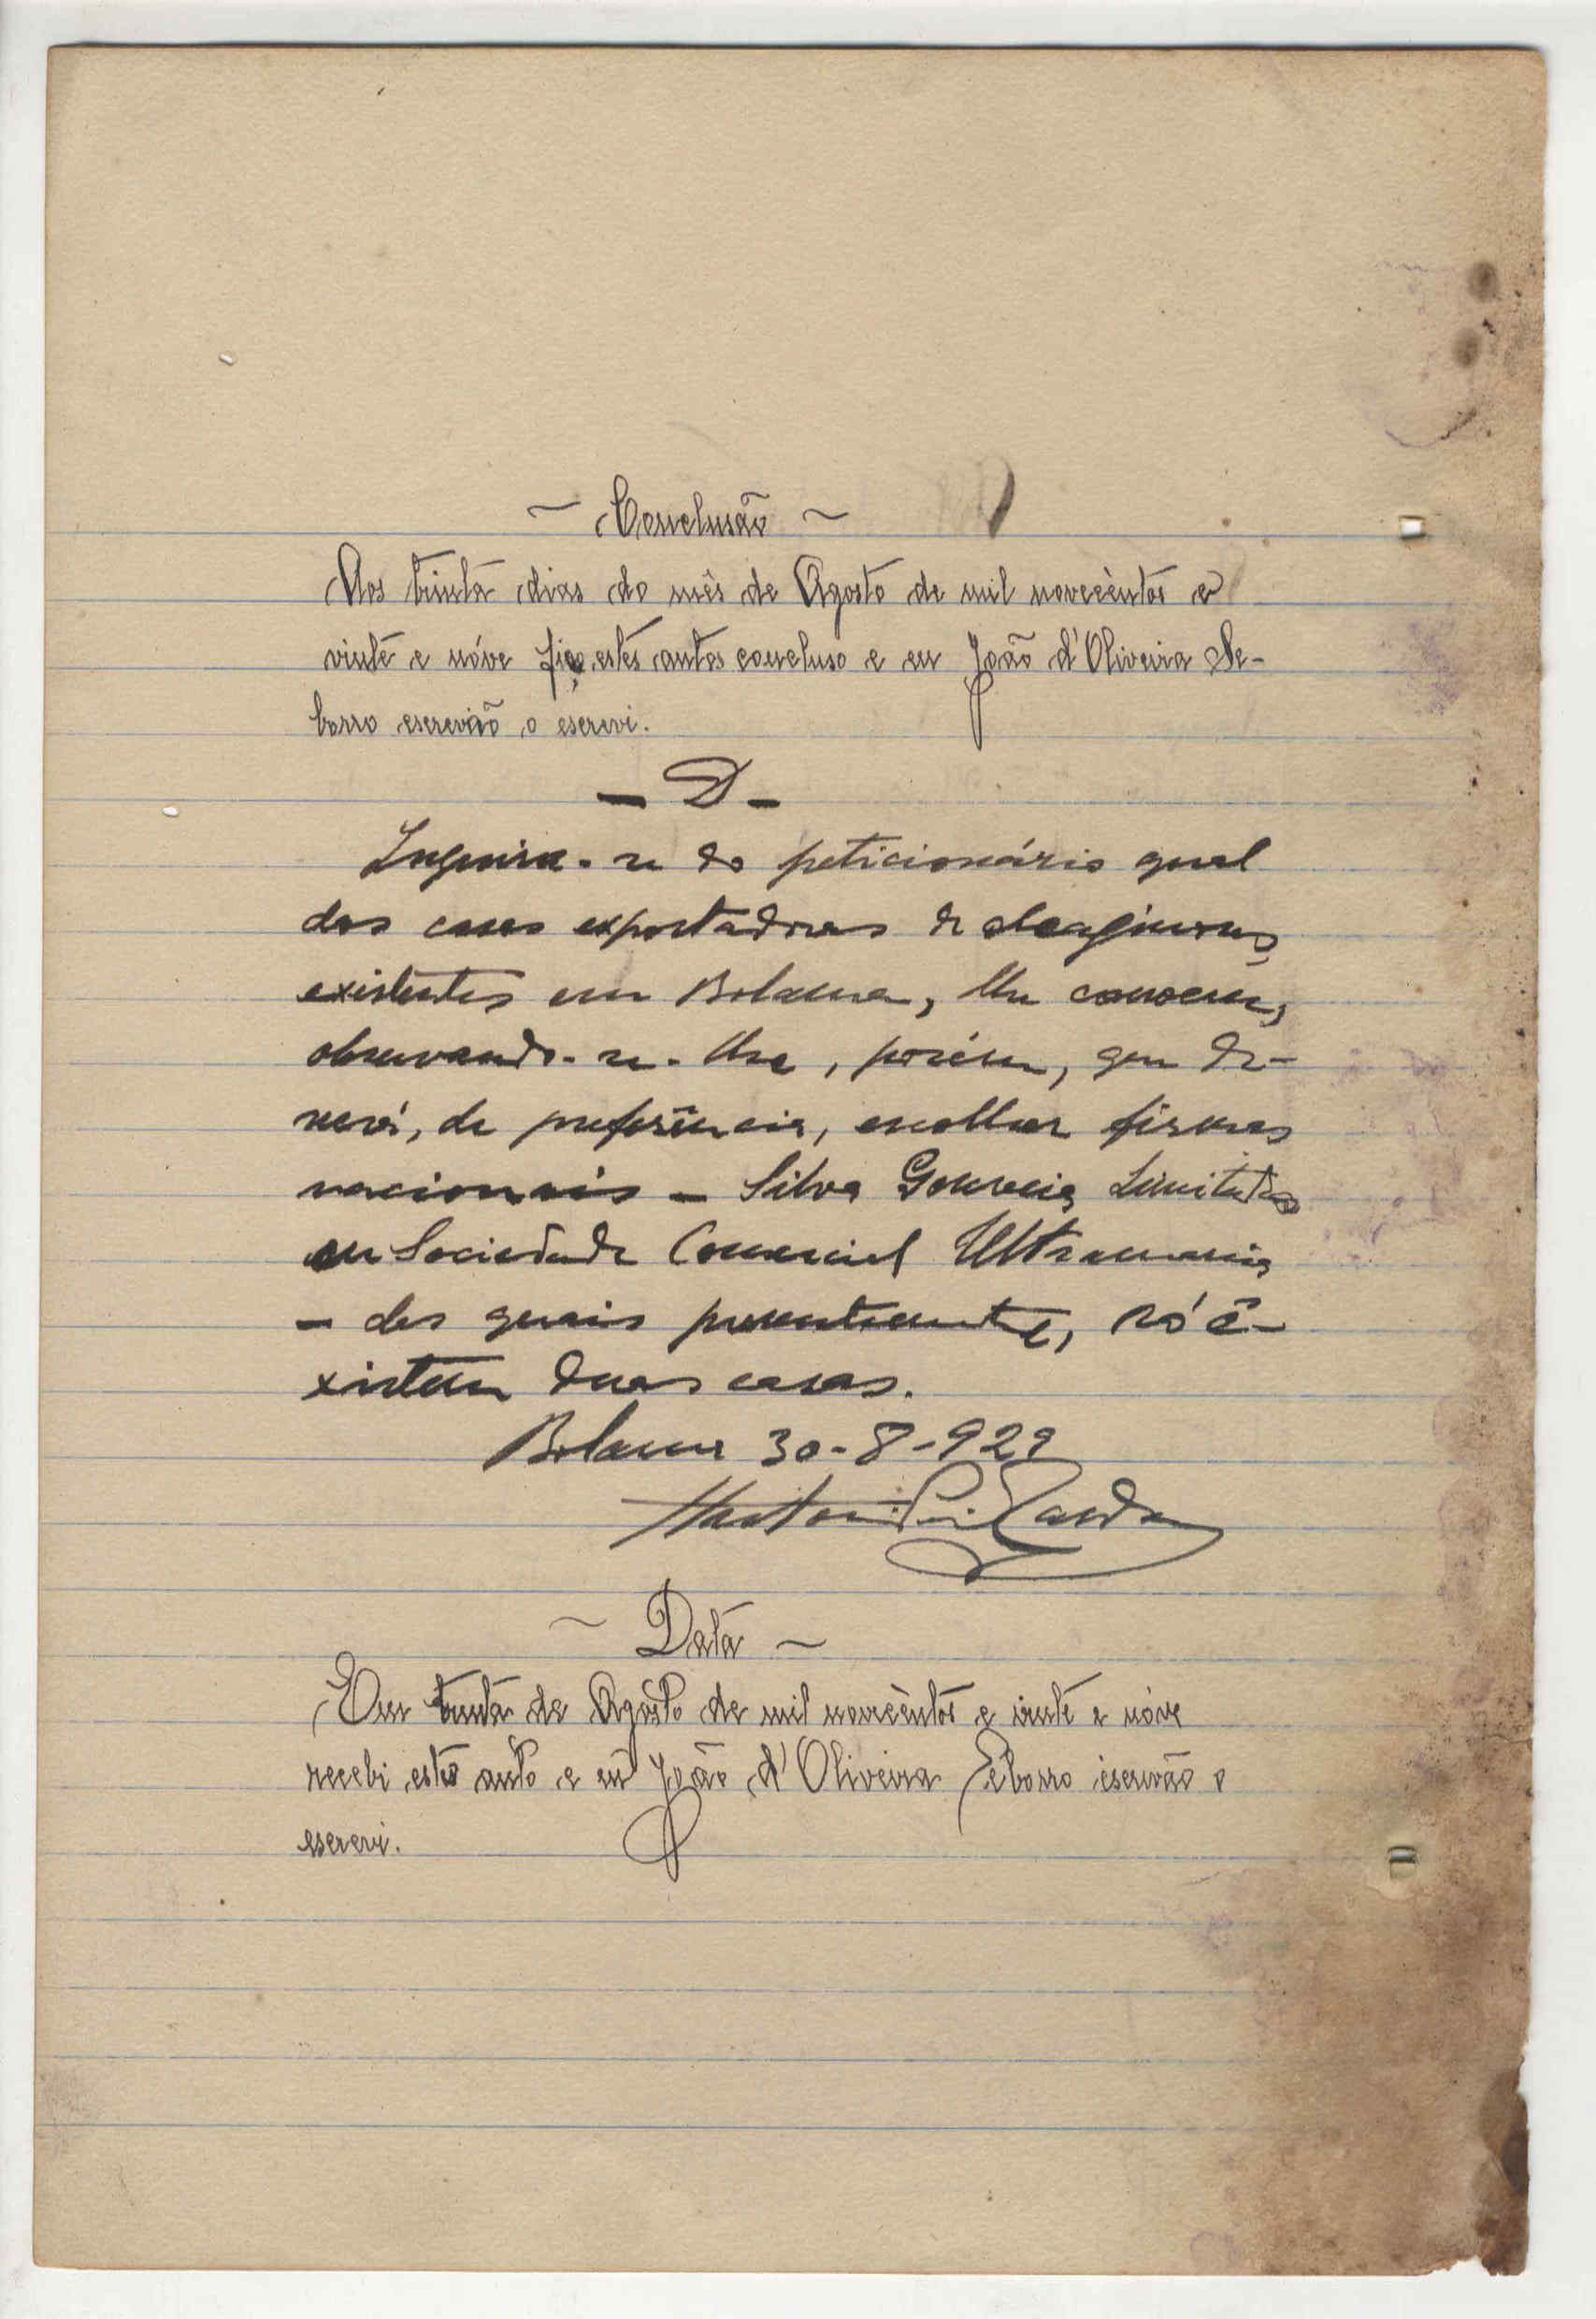 ~ Conclusão ~
Aos trinta dias do mês de Agosto de mil novecèntos e
vinte e nóve faço estes autos concluso e eu João d'Oliveira Se-
borro escrevião o escrevi.
- D -
Inquira-se do peticionário qual
das casas exportadoras de oleaginosas,
existentes em Bolama, lhe convem,
observando-se-lhe, porém, que de-
verá, de preferência, escolher firmas
nacionais - Silva Gouveia, Limitada
ou Sociedade Comercial Ultramarina
- das quais presentemente, só e-
xistem duas casas.
Bolama 30-8-929
~ Data ~
Em trinta de Agôsto de mil novecèntos e vinte e nóve
recebi estes auto e eu João d'Oliveira Seborro escrivão o
escrevi.